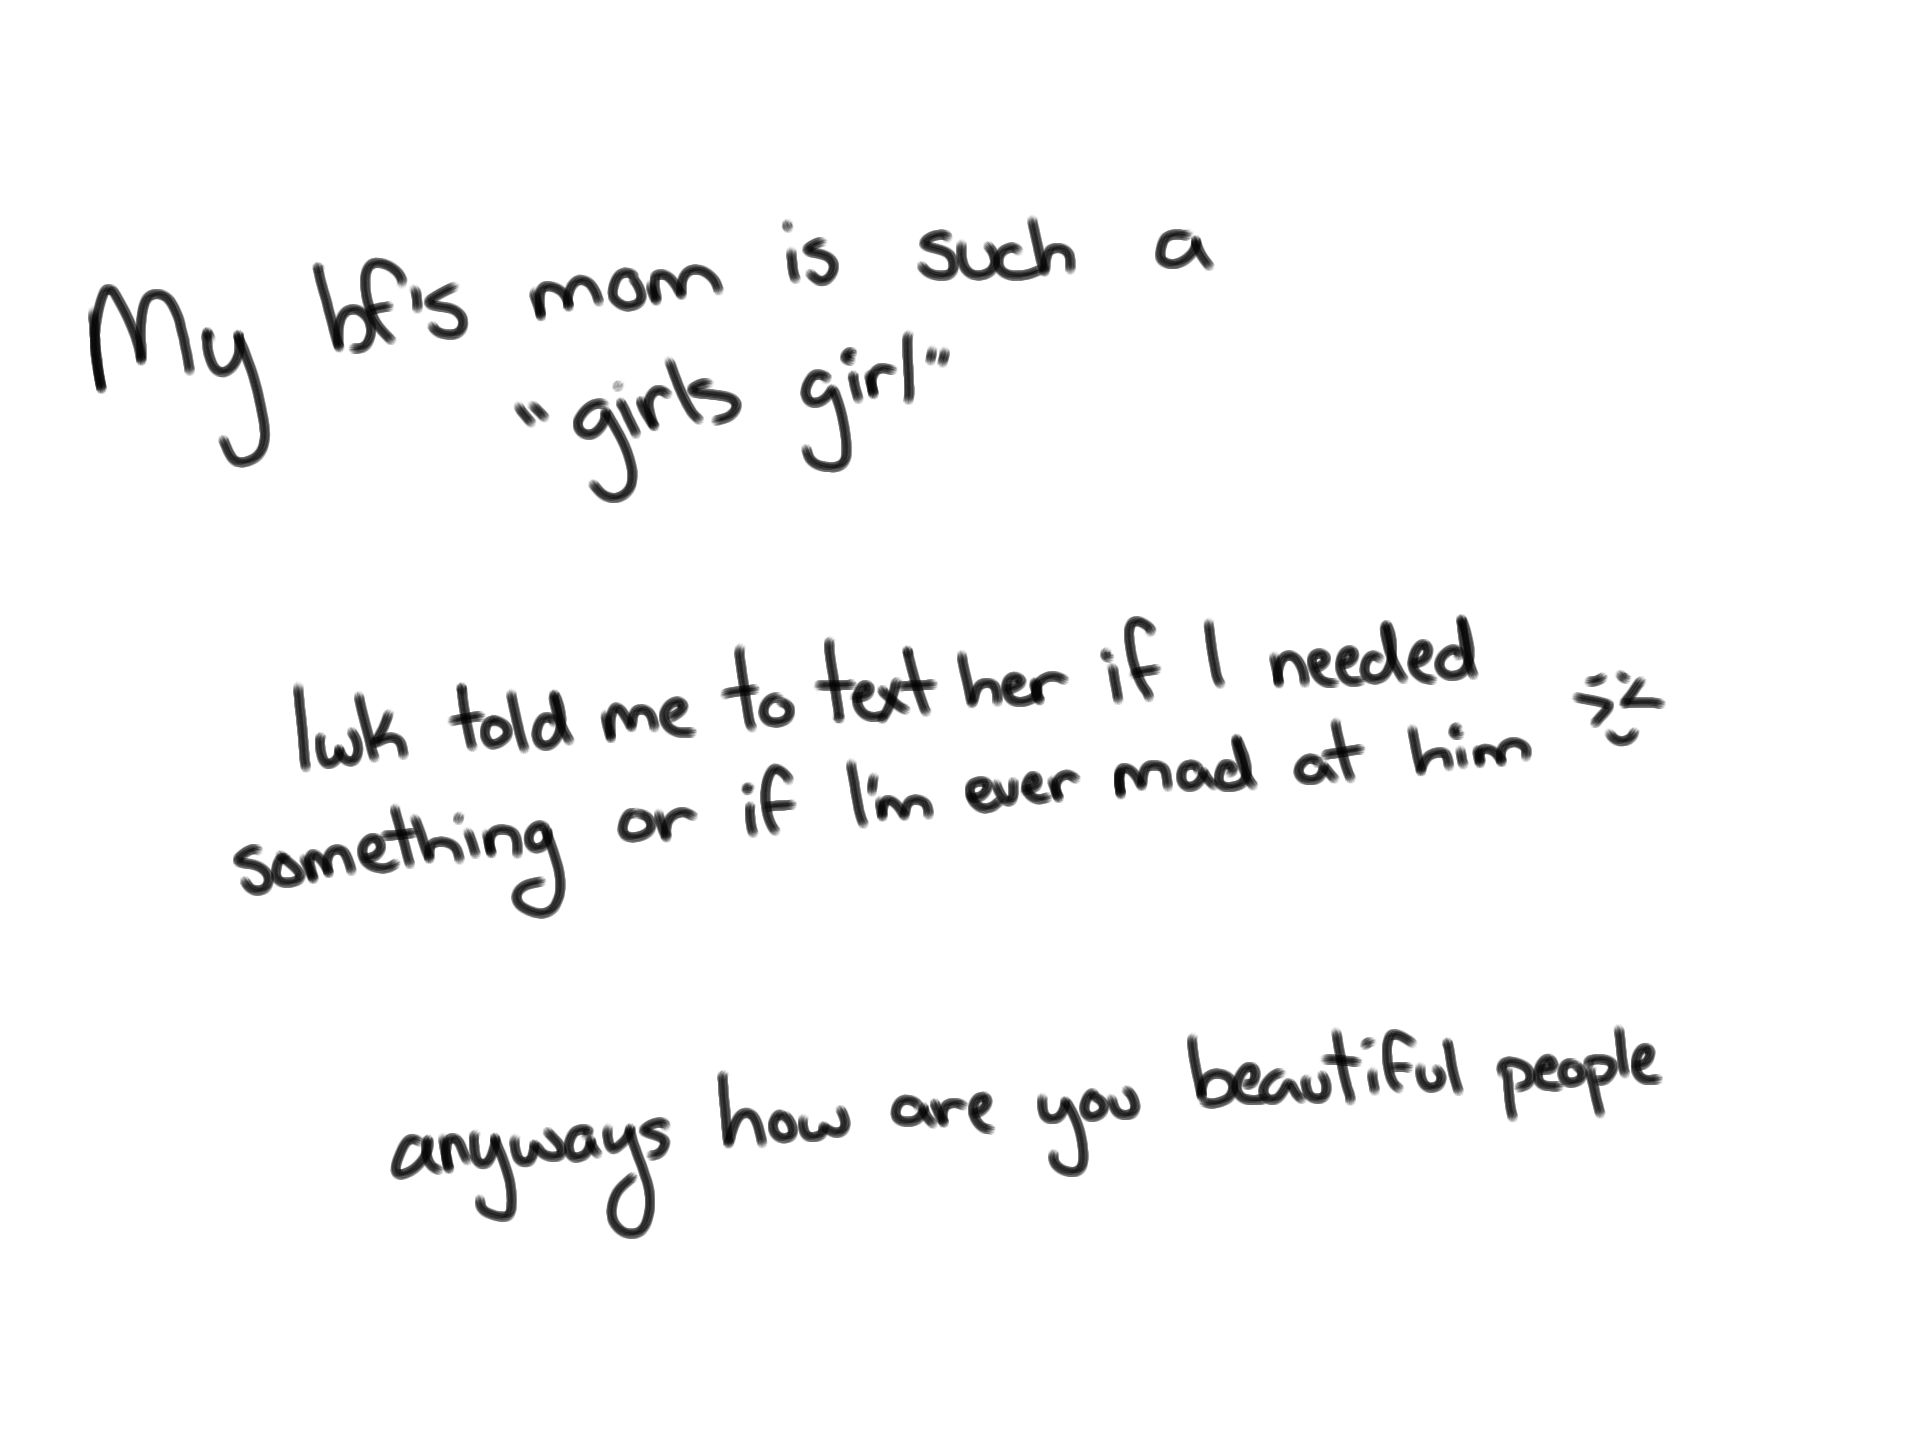 My bf's mom is such a
"girls girl"
lwk told me to text her if I needed
something or if I'm ever mad at him
anyways how are you beautiful people